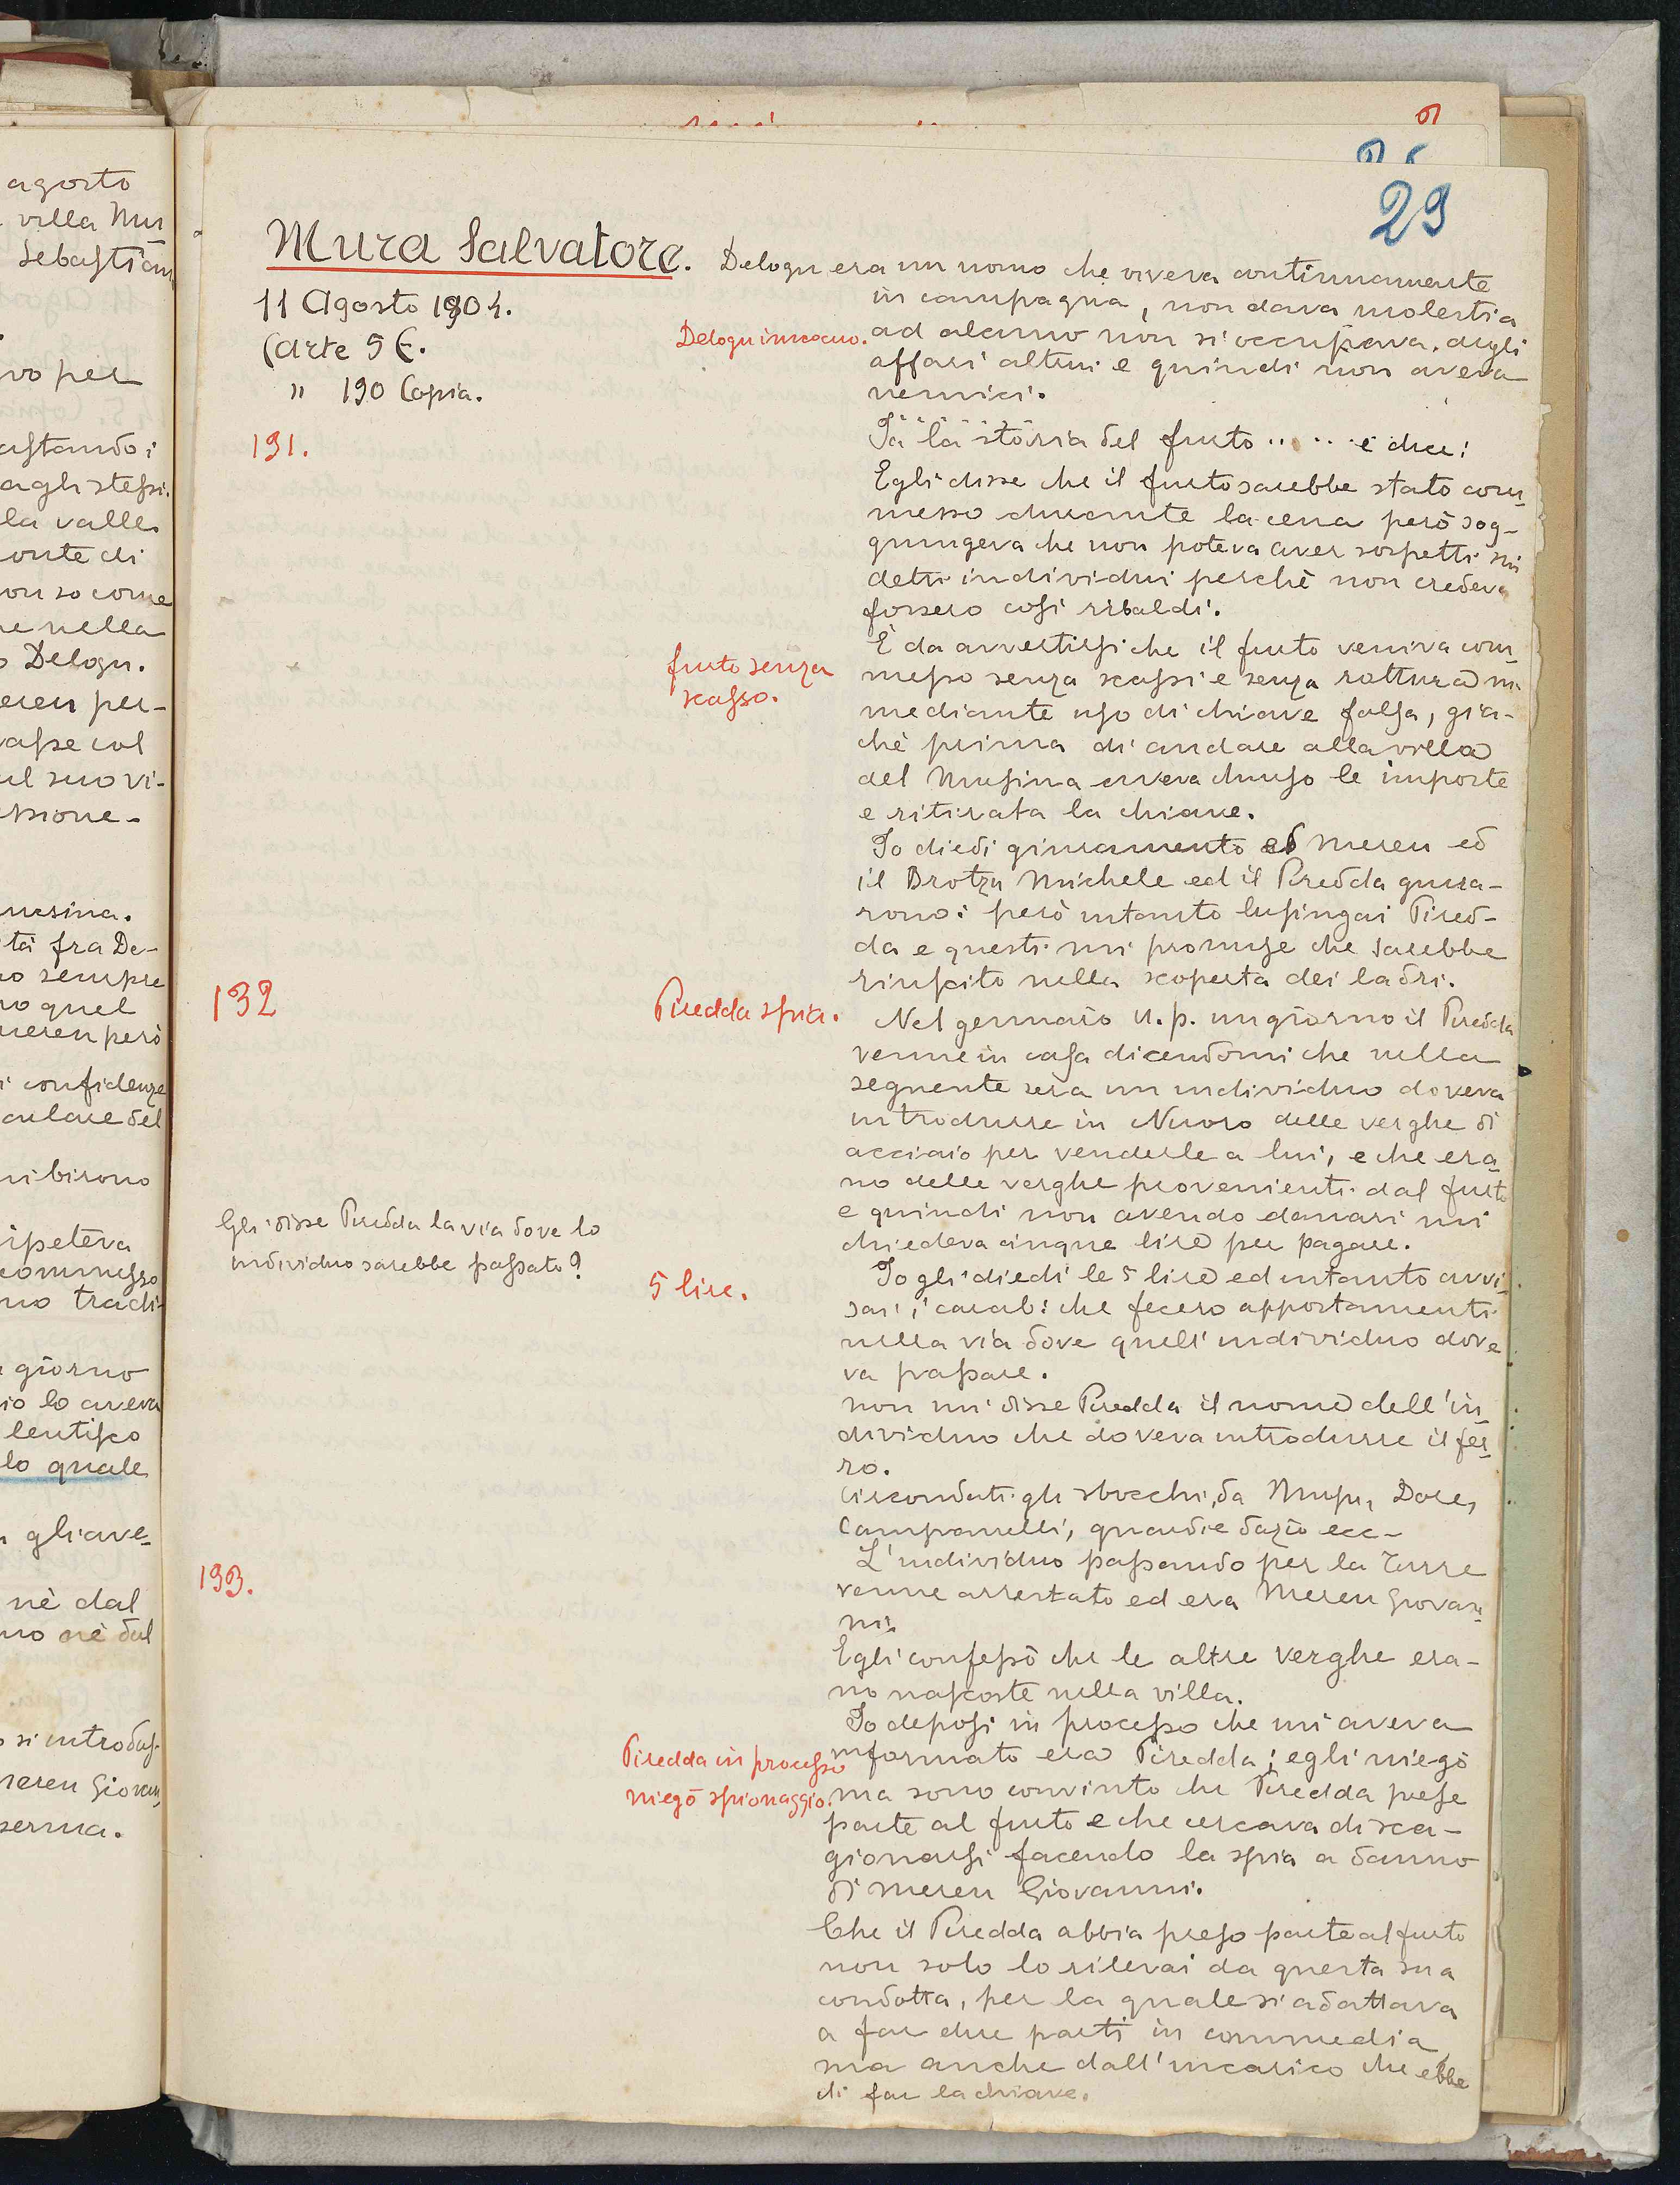 agosto
villa Mu
Sebastian
vo per
astando i
agli stessi.
la valle
onte di
on so come
ne nella
o Delogu.
ereu per-
vasse col
ul suo vi-
ssione-
usina.
tà fra De-
no sempre
no quel
mereu però
i confidenze
colare del
ribirono
ipeteva
commesso
no tradi-
giorno
io lo aveva
lentisco
lo quale
gli ave-
nè dal
no nè dal
o si introdus-
mereu Giovan
serma.
6
29
Mura Salvatore.
11 Agosto 1904.
Carte 5 E.
" 190 Copia.
Delogu era un uomo che viveva continuamente
in campagna, non dava molestia
Delogu innocuo.
ad alcuno non si occupava degli
affari altrui e quindi non aveva
nemici.
191.
Fa la storia del furto ..... e dice:
Egli disse che il furto sarebbe stato com-
messo durante la cena però sog-
giungeva che non poteva aver sospetti sui
detti individui perchè non credeva
fossero cosi ribaldi.
furto senza
scasso.
È da avvertirsi che il furto veniva com-
messo senza scassi e senza rottura ma
mediante uso di chiave falsa, giac-
chè prima di andare alla villa
del Musina aveva chiuso le imposte
e ritirata la chiave.
Io diedi giuramento ad Mereu ed
il Brotzu Michele ed il Piredda giura-
rono: però intanto lusingai Pired-
da e questi mi promise che sarebbe
riuscito nella scoperta dei ladri.
192
Piredda spia.
Nel gennaio u.p. un giorno il Piredda
venne in casa dicendomi che nella
seguente sera un individuo doveva
introdurre in Nuoro delle verghe di
acciaio per venderle a lui, e che era-
no delle verghe provenienti dal furto
e quindi non avendo danari mi
chiedeva cinque lire per pagare.
Gli disse Piredda la via dove lo
individuo sarebbe passato?
5 lire.
Io gli diedi le 5 lire ed intanto avvi-
sai i carab: che fecero appostamenti
nella via dove quell'individuo dove
va passare.
non mi disse Piredda il nome dell'in-
dividuo che doveva introdurre il fer-
ro.
Circondati gli sbocchi, da Mupu, Dore,
Campanelli, guardie dazio ecc-
193.
L'individuo passando per la Turre
venne arrestato ed era Mereu Giovan-
ni.
Egli confessò che le altre verghe era-
no nascoste nella villa.
Io deposi in processo che mi aveva
Piredda in processo
niegò spionaggio.
informato era Piredda; egli niegò
ma sono convinto che Piredda prese
parte al furto e che cercava di sca-
gionarsi facendo la spia a danno
di Mereu Giovanni.
Che il Piredda abbia preso parte al furto
non solo lo rilevai da questa sua
condotta, per la quale si adattava
a far due parti in commedia
ma anche dall'incarico che ebbe
di far la chiave.